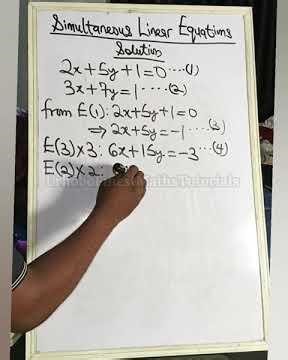 Simultaneous Linear Equations
Solution
2x+5y+1=0 ....(1)
3x+7y=1 ....(2)
from E(1): 2x+5y+1=0
⇒ 2x+5y=-1 ....(3)
E(3)×3: 6x+15y=-3 ...(4)
E(2)×2: